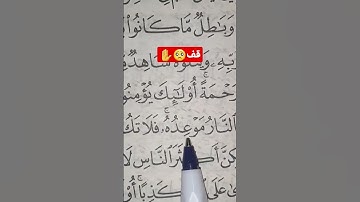 وَبَٰطِلٌ مَّا كَانُوا۟
قف🥺✋
بِّهِۦ وَيَتْلُوهُ شَاهِدٌ
رَحْمَةً ۚ أُو۟لَٰٓئِكَ يُؤْمِنُو
ٱلنَّارُ مَوْعِدُهُۥ ۚ فَلَا تَكُ
كِنَّ أَكْثَرَ ٱلنَّاسِ لَا
ىٰ عَلَى كَذِبًا ۚ أُو۟